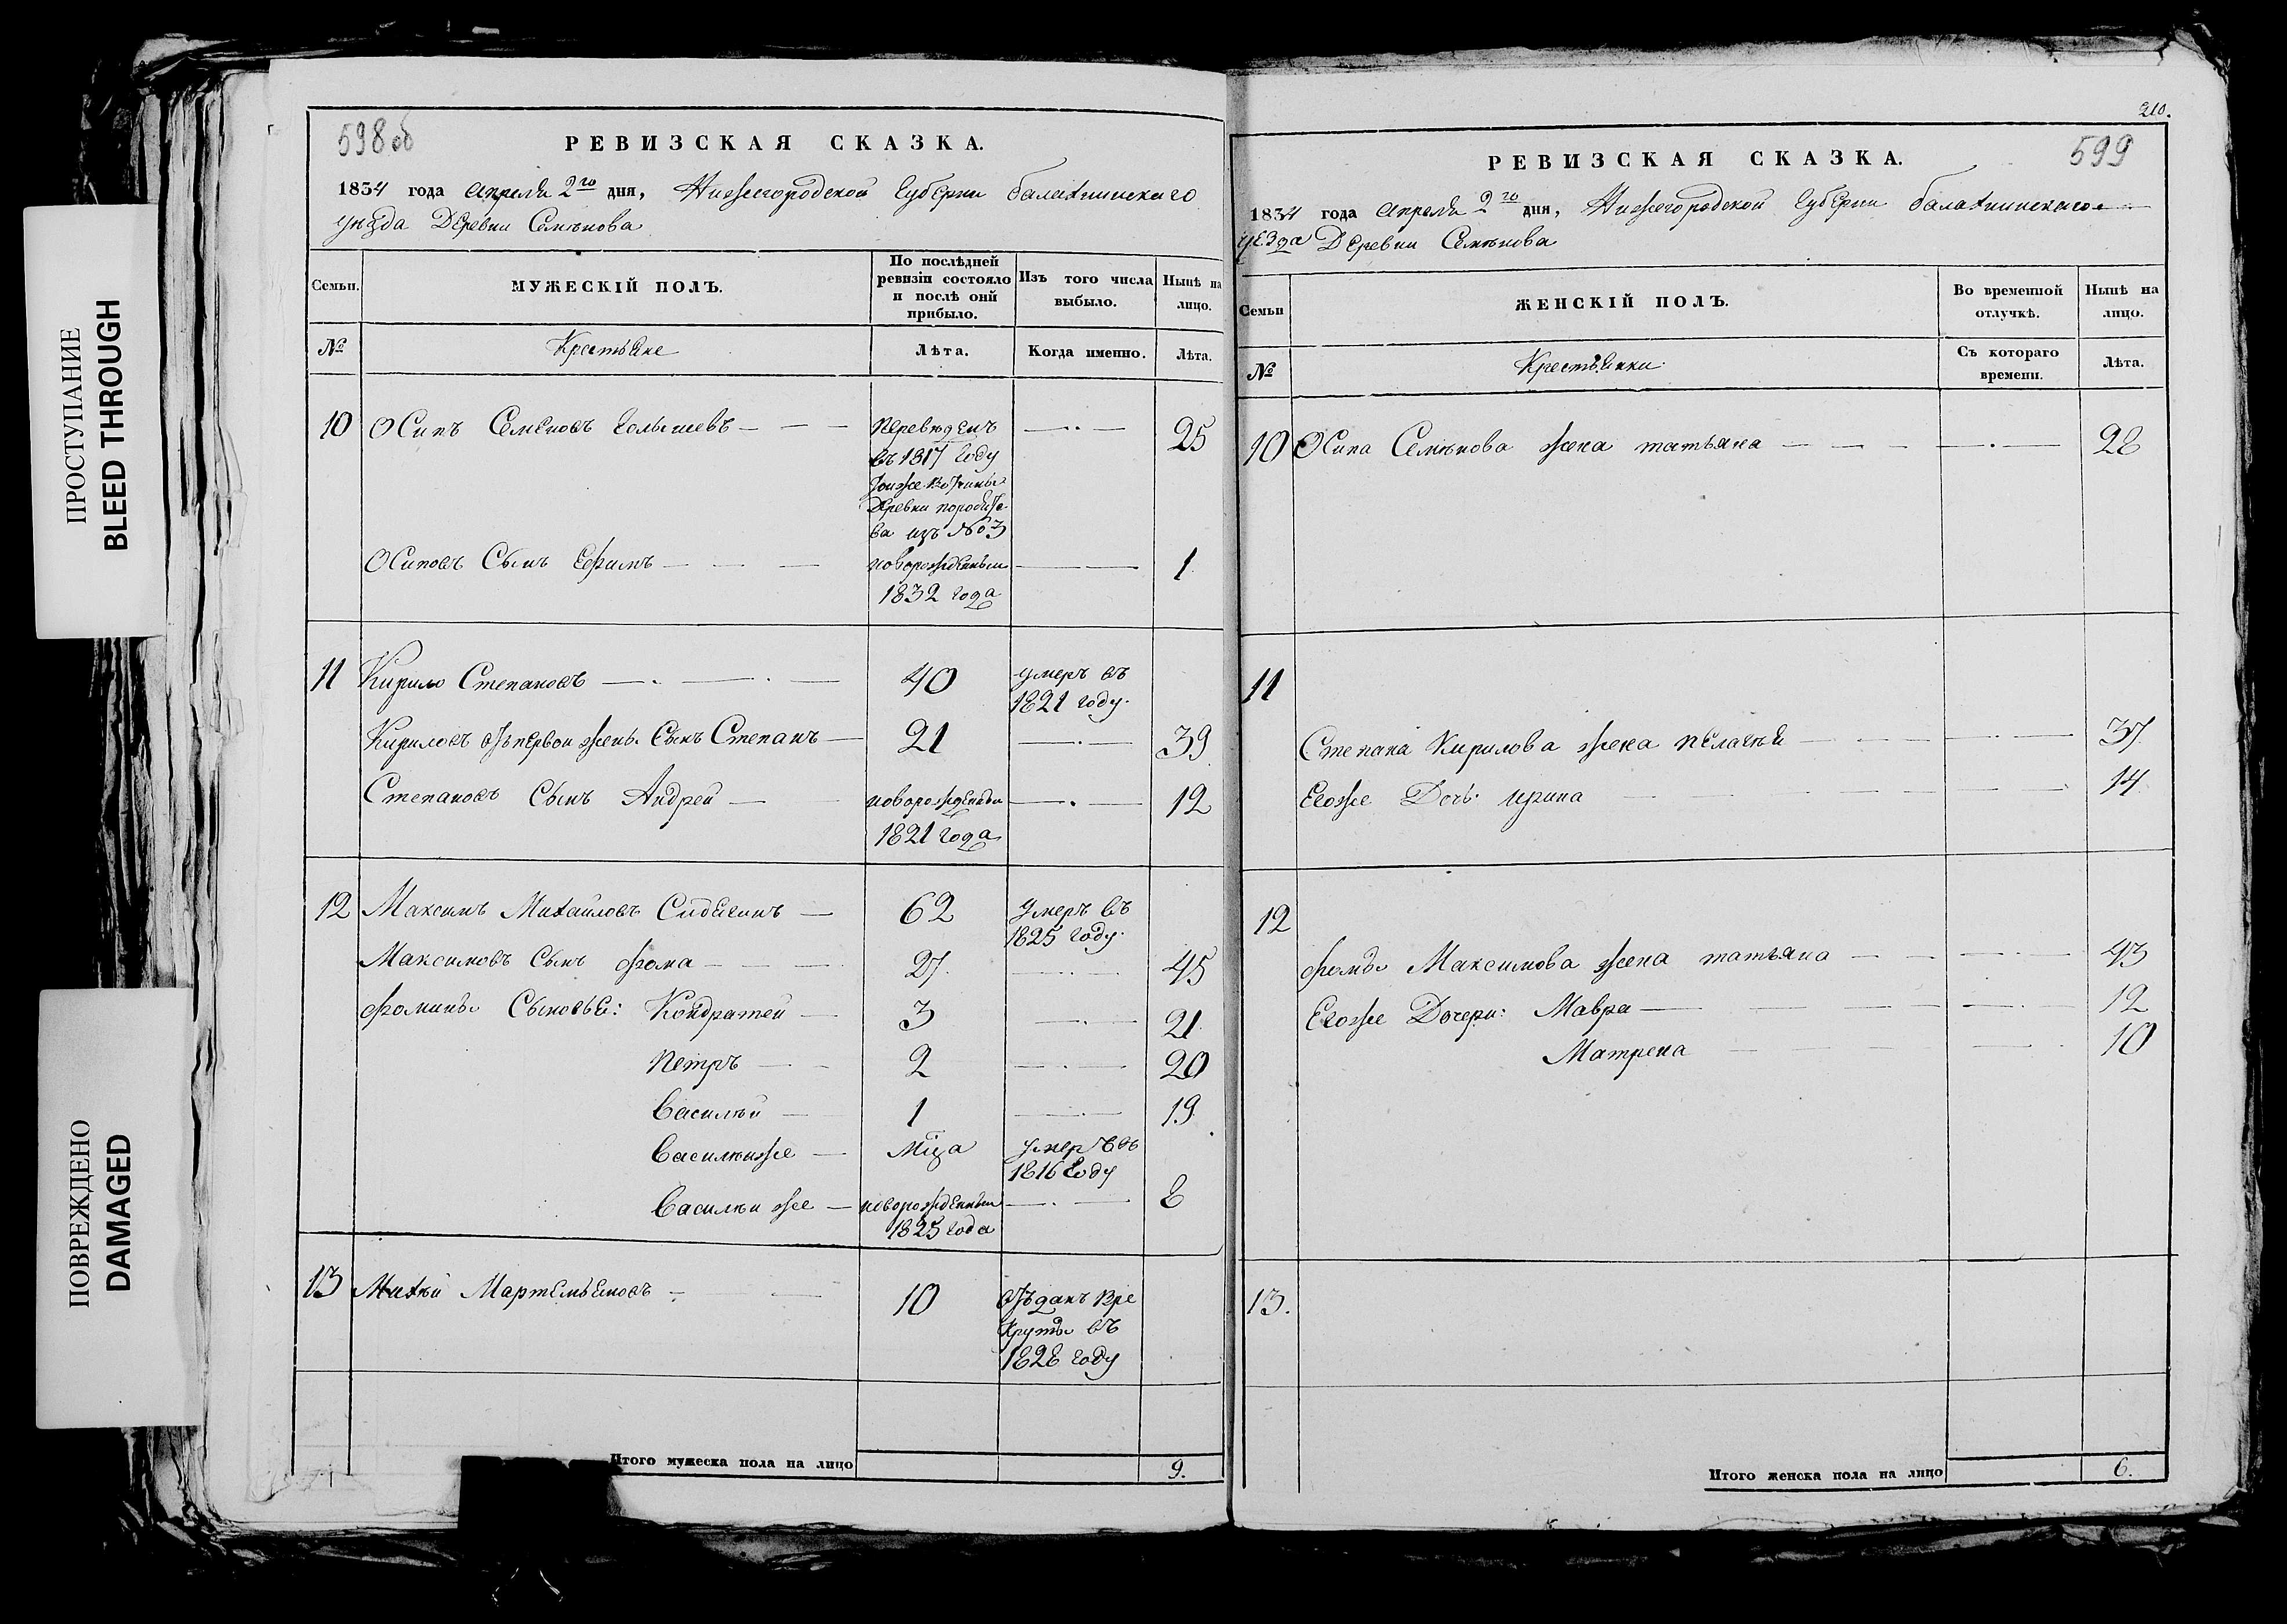 ПРОСТУПАНИЕ
BLEED THROUGH
ПОВРЕЖДЕНО
DAMAGED
598 об
РЕВИЗСКАЯ СКАЗКА.
1834 года апреля 2го дня, Нижегородской Губернии балахнинскаго
уѣзда Деревни Семѣнова
Семьи.
МУЖЕСКІЙ ПОЛЪ.
По послѣдней ревизіи состояло и послѣ онй прибыло.
Изъ того числа выбыло.
Нынѣ на лицо.
№
Крестьяне
Лѣта.
Когда именно.
Лѣта.
10 Осипъ Семеновъ Голышевъ — — — переведенъ —.— 25
въ 1817 Году
тоиже вотчины
Деревни
ва изъ №3
Осиповъ Сынъ Ефимъ — — — новорожденныи —— 1
1832 года
11 Кирило Степановъ —.—.— 40 умеръ въ
1821 году.
Кириловъ отъ первои жены Сынъ Степанъ — 21 —.— 39
Степановъ Сынъ Андрей — новорожденныи —.— 12
1821 Года
12 Максимъ Михайловъ — 62 Умеръ въ
1825 году.
Максимовъ Сынъ фома — — — 27. —.— 45
фомины Сыновья: Кондратей — 3 —.— 21
Петръ — 2 —.— 20
Василѣй — 1 —.— 19
Василѣиже — Мца Умеръ въ
1816 Году
Василѣи же — новорожденныи —.— 8
1825 года
13 Михѣй Мартемьеновъ — 10 Отъданъ вре
круты въ
1828 году
Итого мужеска пола на лицо 9.
210.
599
РЕВИЗСКАЯ СКАЗКА.
1834 года апреля 2го дня, Нижегородской Губернии балахнинскаго
уезда Деревни Семѣнова
Семьи
ЖЕНСКІЙ ПОЛЪ.
Во временной отлучкѣ.
Нынѣ на лицо.
№
Крестьянки
Съ котораго времени.
Лѣта.
10 Осипа Семѣнова жена татьяна — — — —.— 28
11
Степана Кирилова жена пелагѣя — — — —.— 37.
Егоже Дочь ирина — — — — 14
12
фомы Максимова жена татьяна — — —.— 43
Егоже Дочери: Мавра — — — — —.— 12
Матрена — — — — — 10
13.
Итого женска пола на лицо 6.